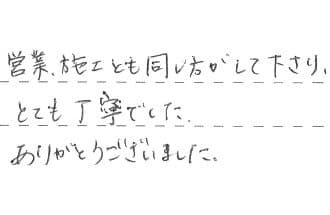 営業、施工とも同じ方がして下さり、
とても丁寧でした。
ありがとうございました。